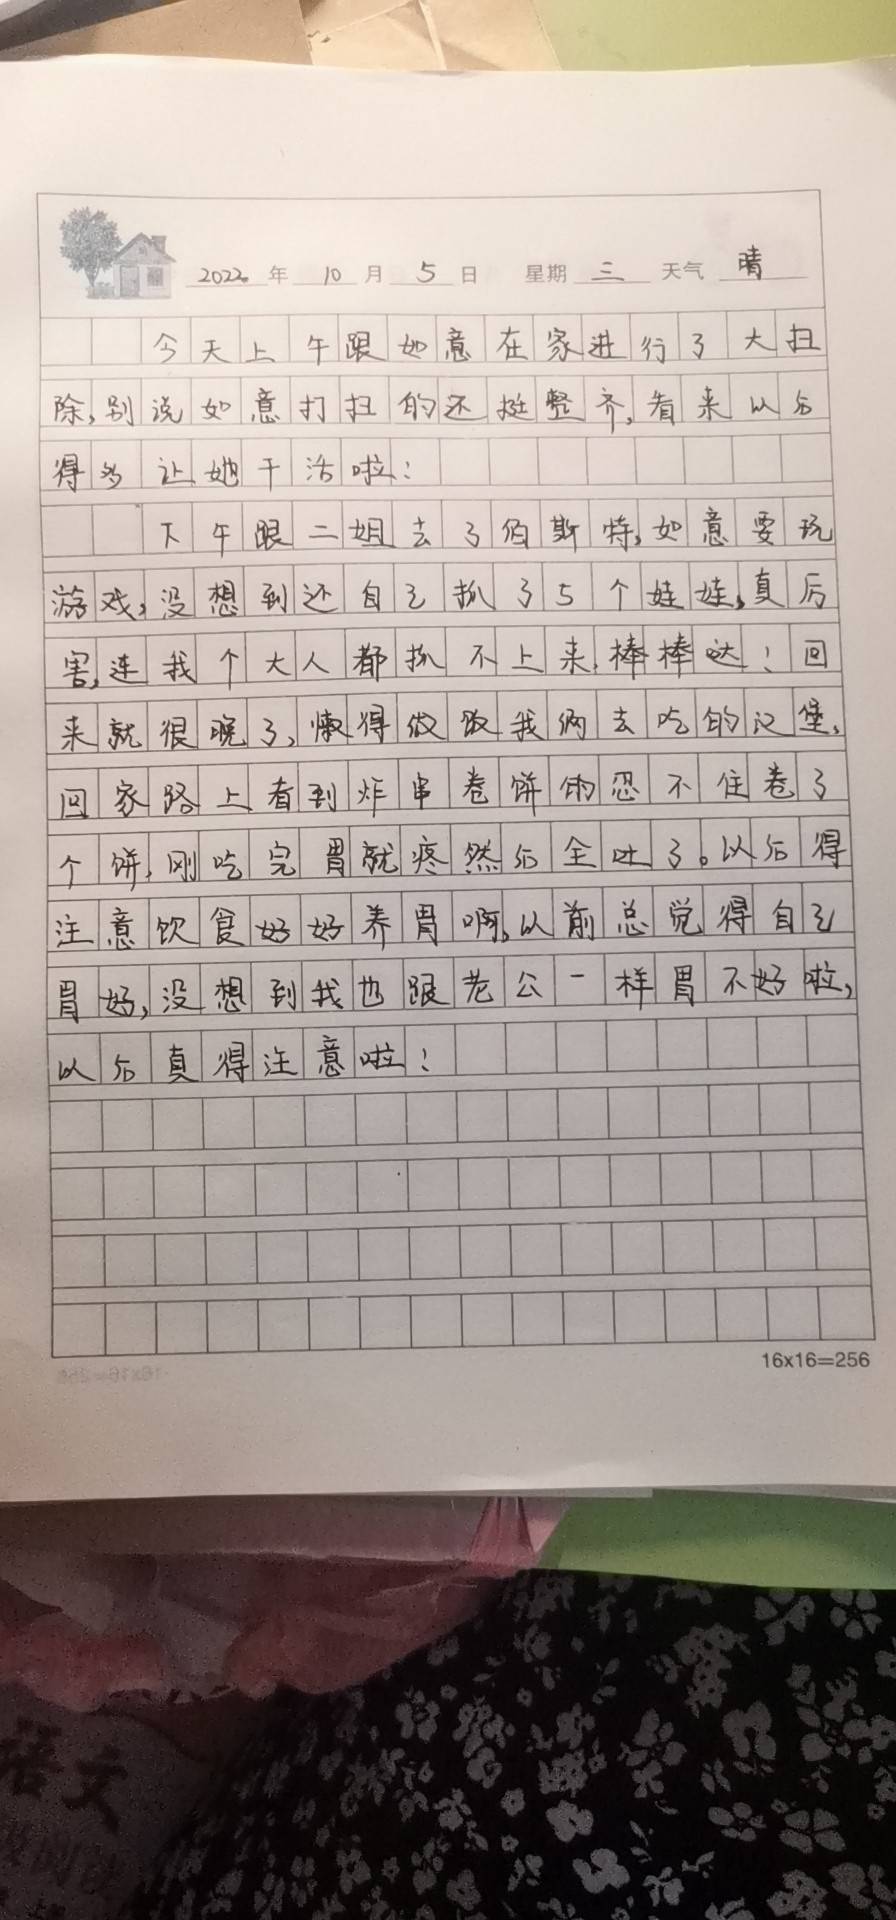 2022年 10月 5日 星期 三 天气 晴
今天上午跟如意在家进行了大扫
除,别说如意打扫的还挺整齐,看来以后
得多让她干活啦!
下午跟二姐去了佰斯特,如意要玩
游戏,没想到还自己抓了5个娃娃,真厉
害,连我个大人都抓不上来,棒棒哒!回
来就很晚了,懒得做饭我俩去吃的汉堡,
回家路上看到炸串卷饼俩忍不住卷了
个饼,刚吃完胃就疼然后全吐了。以后得
注意饮食好好养胃啊,以前总觉得自己
胃好,没想到我也跟老公一样胃不好啦,
以后真得注意啦!
16x16=256
语文